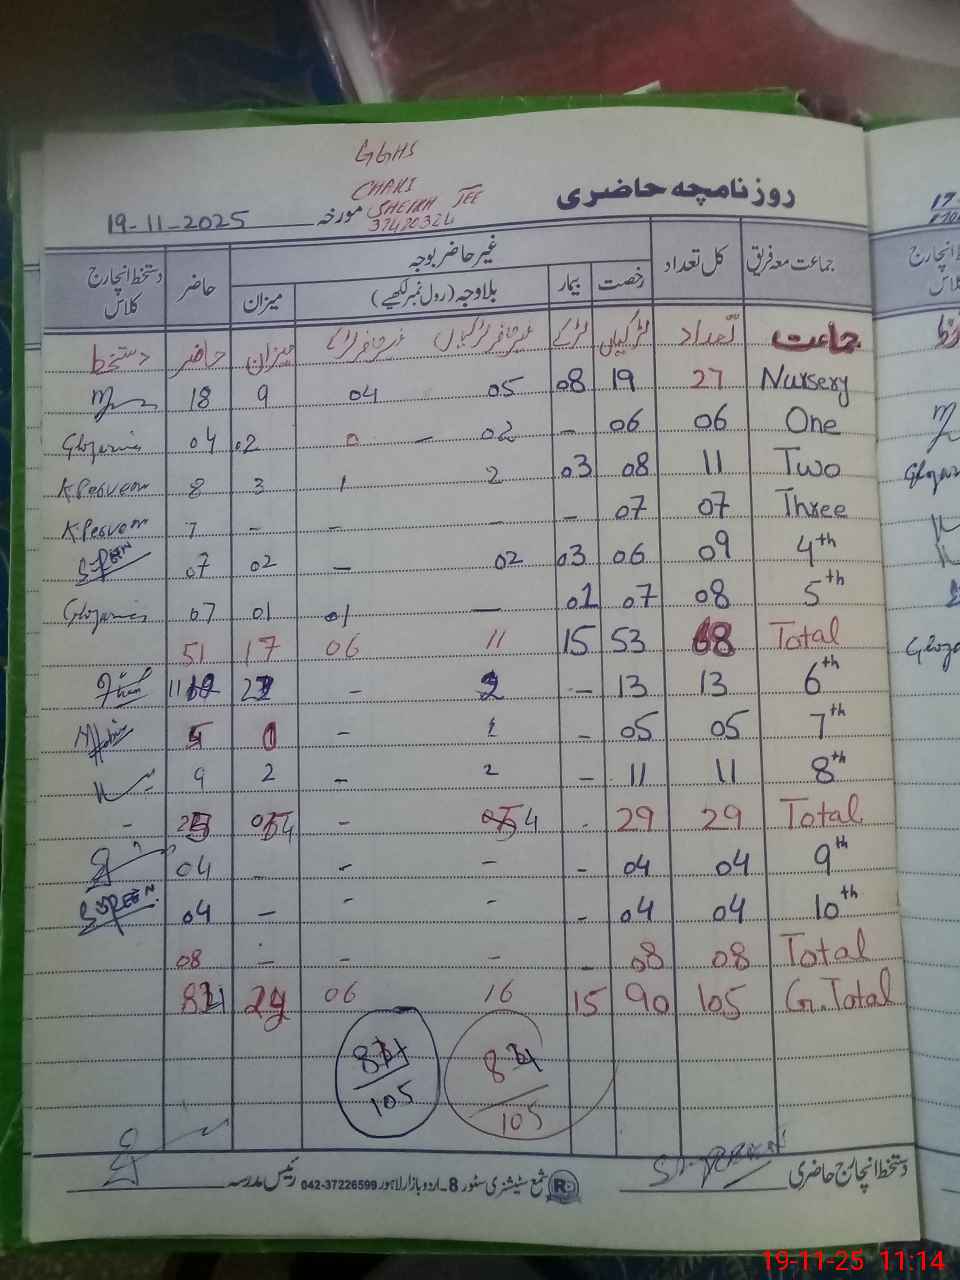 GGHS
CHAHI
SHEIKH TEE
37420324
روزنامچہ حاضری
مورخہ 19-11-2025
جماعت معہ فریق کل تعداد غیر حاضر بوجہ حاضر دستخط انچارج کلاس
رخصت بیمار بلاوجہ (رول نمبر لکھیے) میزان
جماعت تعداد لڑکیاں لڑکے غیر حاضر لڑکیاں غیر حاضر لڑکے میزان حاضر دستخط
Nursery 27 19 08 05 04 9 18
One 06 06 – 02 – 0 02 04
Two 11 08 03 2 1 3 8 K Perveen
Three 07 07 – – – – 7 K Perveen
4th 09 06 03 02 – 02 07
5th 08 07 01 – 01 01 07
Total 68 53 15 11 06 17 51
6th 13 13 – 2 – 2 11
7th 05 05 – –
8th 11 11 – 2 – 2 9
Total 29 29 - 4 – 4 -
9th 04 04 - – - – 04
10th 04 04 - - - – 04
Total 08 08 - - - - 08
G.Total 105 90 15 16 06
105
105
دستخط انچارج حاضری
شمع سٹیشنری سٹور 8-اردو بازار لاہور 042-37226599
رئیس مدرسہ
19-11-25 11:14